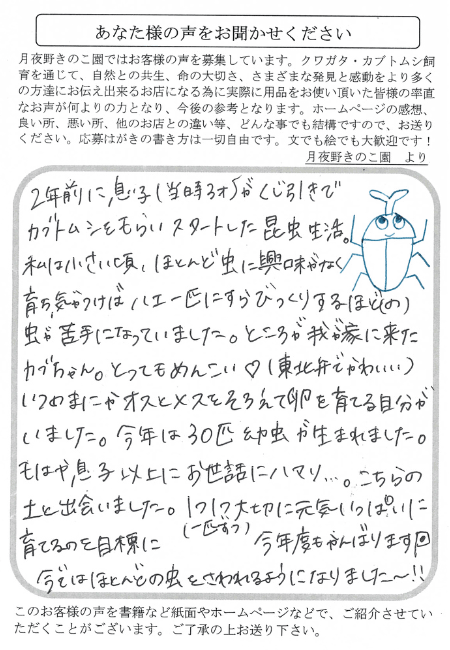 あなた様の声をお聞かせください
月夜野きのこ園ではお客様の声を募集しています。クワガタ・カブトムシ飼
育を通じて、自然との共生、命の大切さ、さまざまな発見と感動をより多く
の方達にお伝え出来るお店になる為に実際に用品をお使い頂いた皆様の率直
なお声が何よりの力となり、今後の参考となります。ホームページの感想、
良い所、悪い所、他のお店との違い等、どんな事でも結構ですので、お送り
ください。応募はがきの書き方は一切自由です。文でも絵でも大歓迎です！
月夜野きのこ園　より
2年前に、息子(当時3才)がくじ引きで
カブトムシをもらいスタートした昆虫生活。
私は小さい頃、ほとんど虫に興味がなく
育ち、気がつけばハエ一匹にすらびっくりするほど(の)
虫が苦手になっていました。ところが我が家に来た
カブちゃん。とってもめんこい♡(東北弁でかわいい)
いつのまにかオスとメスをそろえて卵を育てる自分が
いました。今年は30匹幼虫が生まれました。
もはや、息子以上にお世話にハマり…。こちらの
土と出会いました。1つ1つ大切に元気いっぱいに
(一匹ずつ)
育てるのを目標に　今年度もがんばります
今ではほとんどの虫をさわれるようになりました〜!!
このお客様の声を書籍など紙面やホームページなどで、ご紹介させてい
ただくことがございます。ご了承の上お送り下さい。